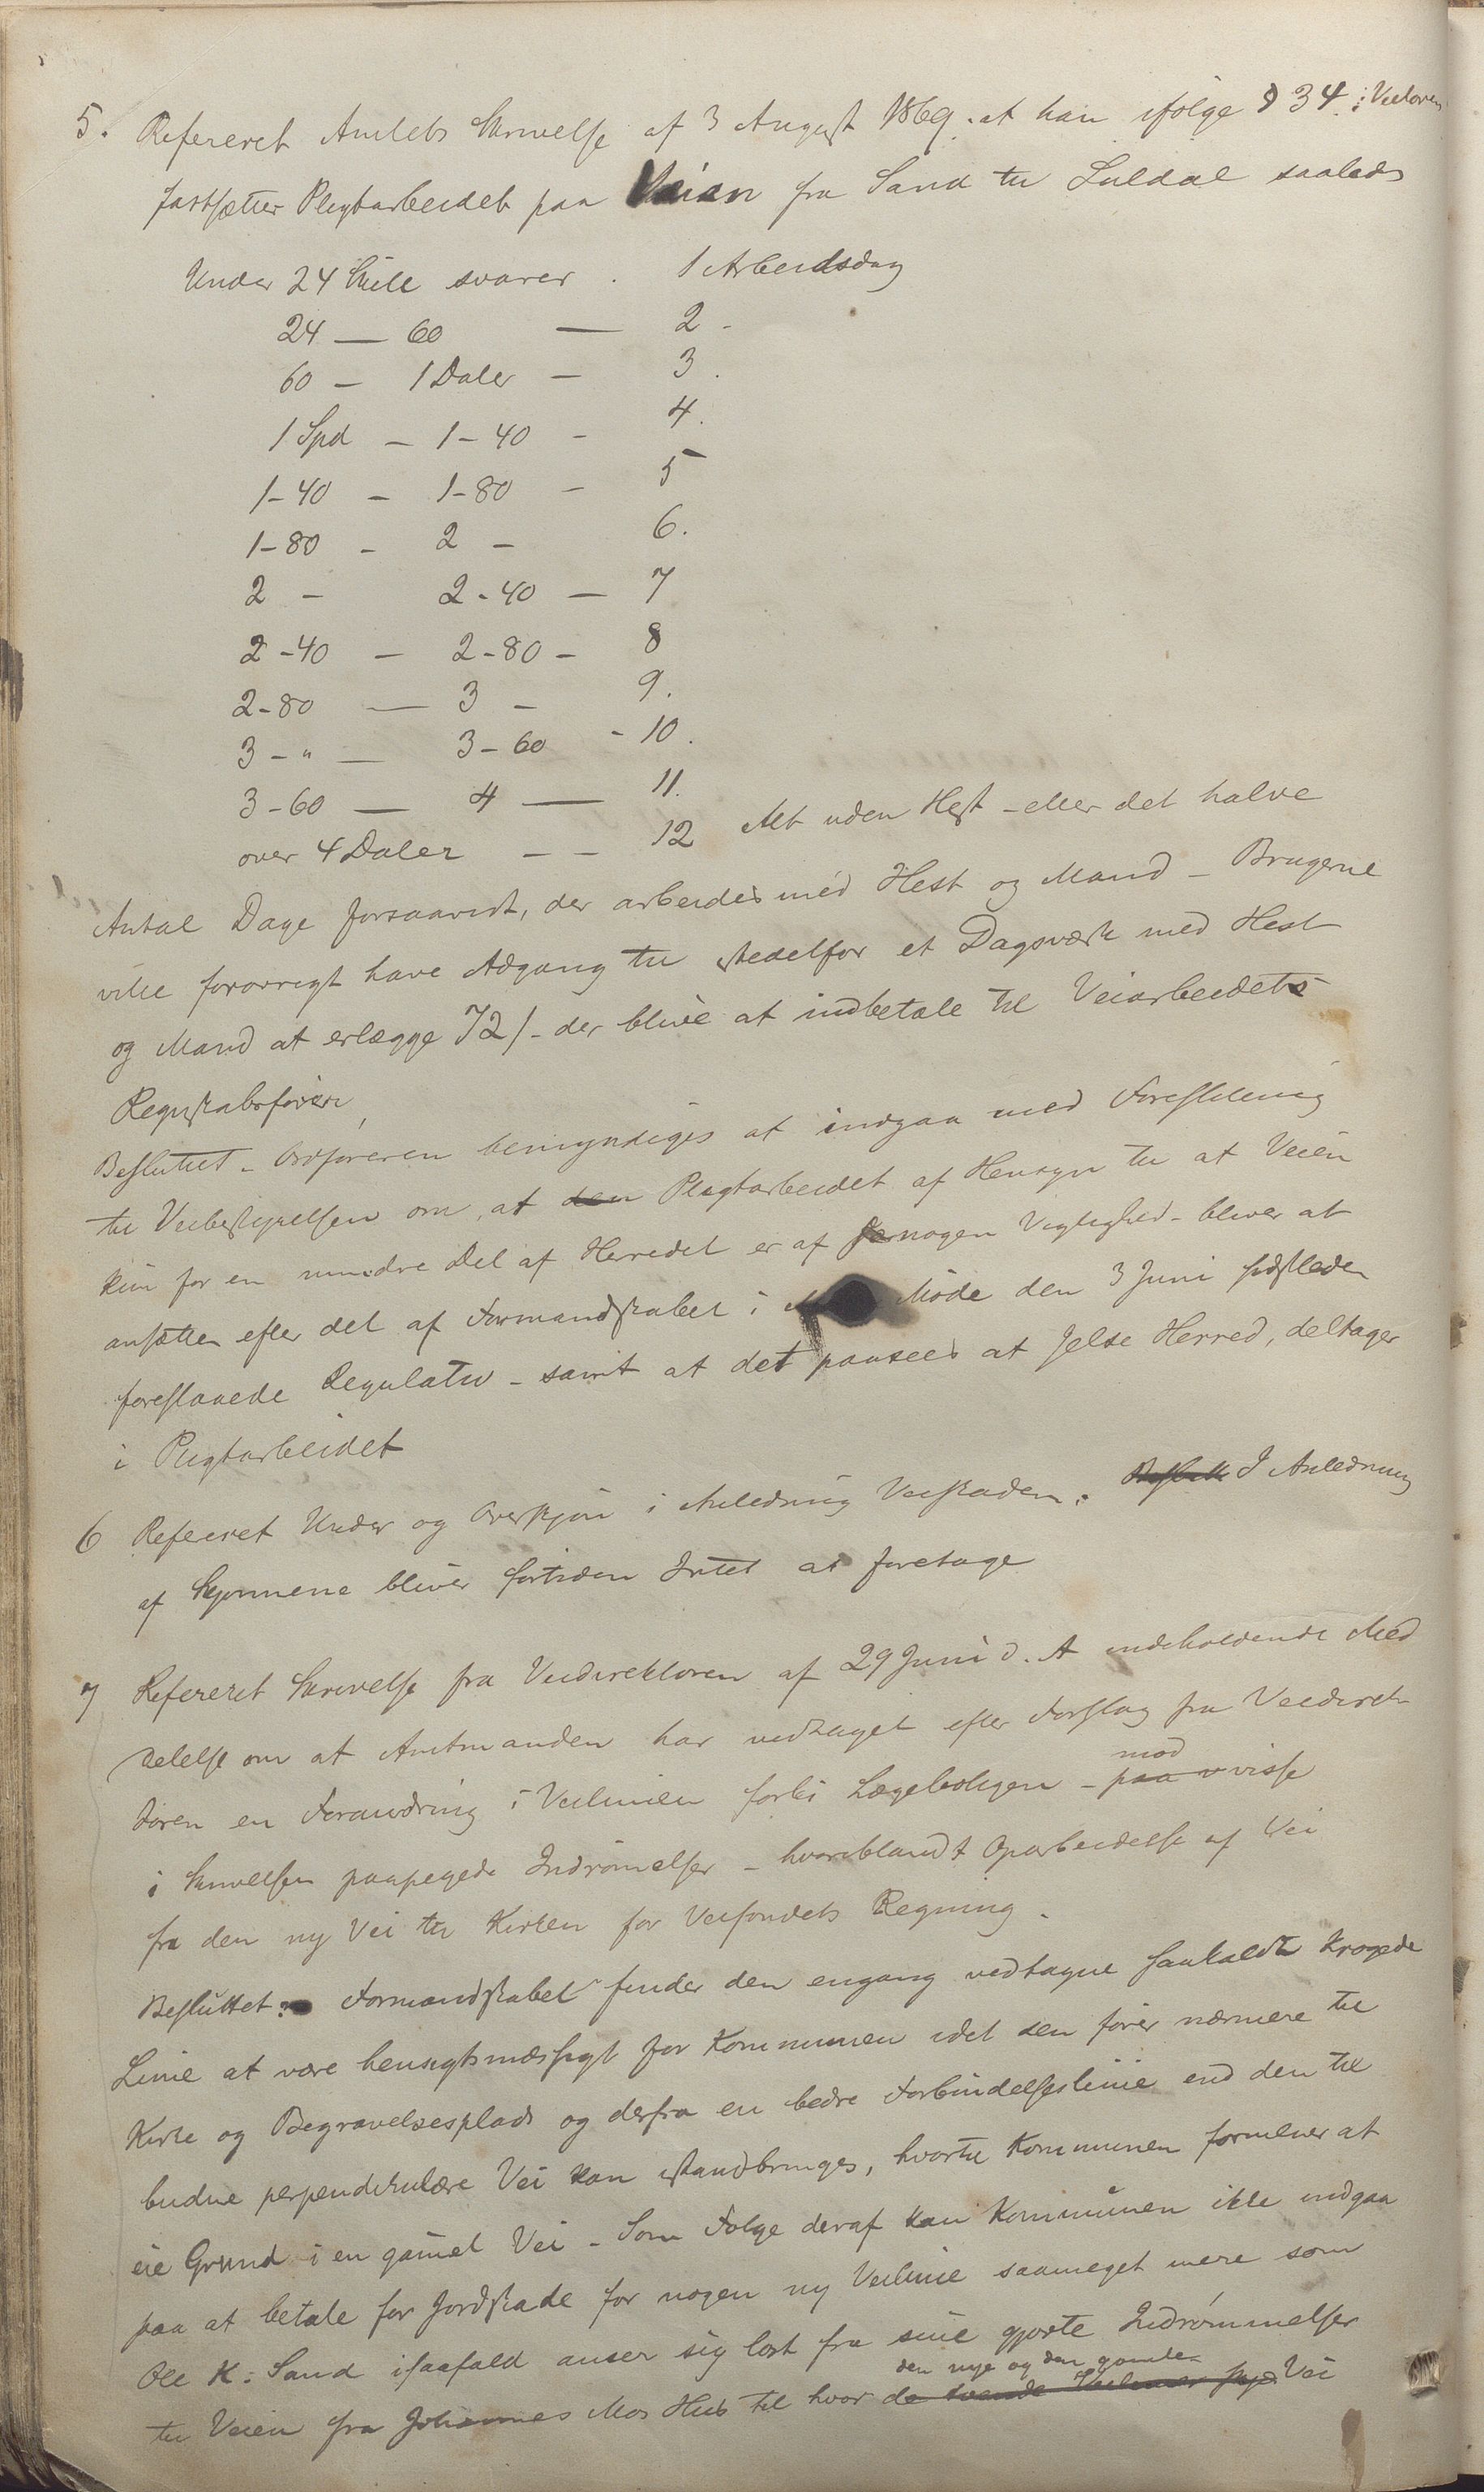 5. Refereret Amtets Skrivelse af 3 August 1869. at han ifølge § 34 i Veiloven
fastsætter Pligtarbeidet paa Veien fra Sand til Suldal saaledes
Under 24 Skill svarer . 1 Arbeidsdag
24 — 60 — 2 -
60 — 1 Daler — 3.
1 Spd — 1-40 - 4.
1-40 — 1-80 — 5
1-80 - 2 - 6.
2 - 2-40 — 7
2-40 — 2-80 - 8
2-80 — 3 - 9.
3 - " — 3-60 - 10.
3-60 — 4 — 11.
over 4 Daler — — 12 Alt uden Hest - eller det halve
Antal Dage forsaavidt, der arbeides med Hest og Mand - Brugerne
ville forøvrigt have Adgang til istedetfor et Dagsværk med Hest
og Mand at erlægge 72 / - der blive at indbetale til Veiarbeidets
Regnskabsfører
Besluttet - Ordføreren bemyndiges at indgaa med Forestilling
til Veibestyrelsen om, at den Pligtarbeidet af Hensyn til at Veien
kun for en mindre Del af Herredet er af nogen Vigtighed - bliver at
ansætte efter det af Formandskabet i Møde den 3 Juni sidstleden
foreslaaede Regulativ - samt at det paasees at Jelse Herred, deltager
i Pligtarbeidet
6 Refereret Under og Overskjøn i Anledning Veiskaden. Beslutt I Anledning
af Skjønnene bliver fortiden Intet at foretage
7 Refereret Skrivelse fra Veidirektøren af 29 Juni d. A indeholdende Med
delelse om at Amtmanden har vedtaget efter Forslag fra Veidirek
tøren en Forandring i Veilinien forbi Lægeboligen - paa mod visse
i Skrivelsen paapegede Indrømelser - hvoriblandt Oparbeidelse af Vei
fra den ny Vei til Kirken for Veifondets Regning.
Besluttet: Formandskabet finder den engang vedtagne saakaldte krogede
Linie at være hensigtsmæssigt for Kommunen idet den fører nærmere til
Kirke og Begravelsesplads og derfra en bedre Forbindelseslinie end den til
budne perpendikulære Vei kan istandbringes, hvortil Kommunen formener at
eie Grund i en gamel Vei - Som Følge deraf kan Kommunen ikke indgaa
paa at betale for Jordskade for nogen ny Veilinie saameget mere som
Ole K. Sand isaafald anser sig løst fra sine gjorte Indrømmelser
den nye og den gamle
til Veien fra Johannes Mos Hus til hvor de tvende Veilinier Vei